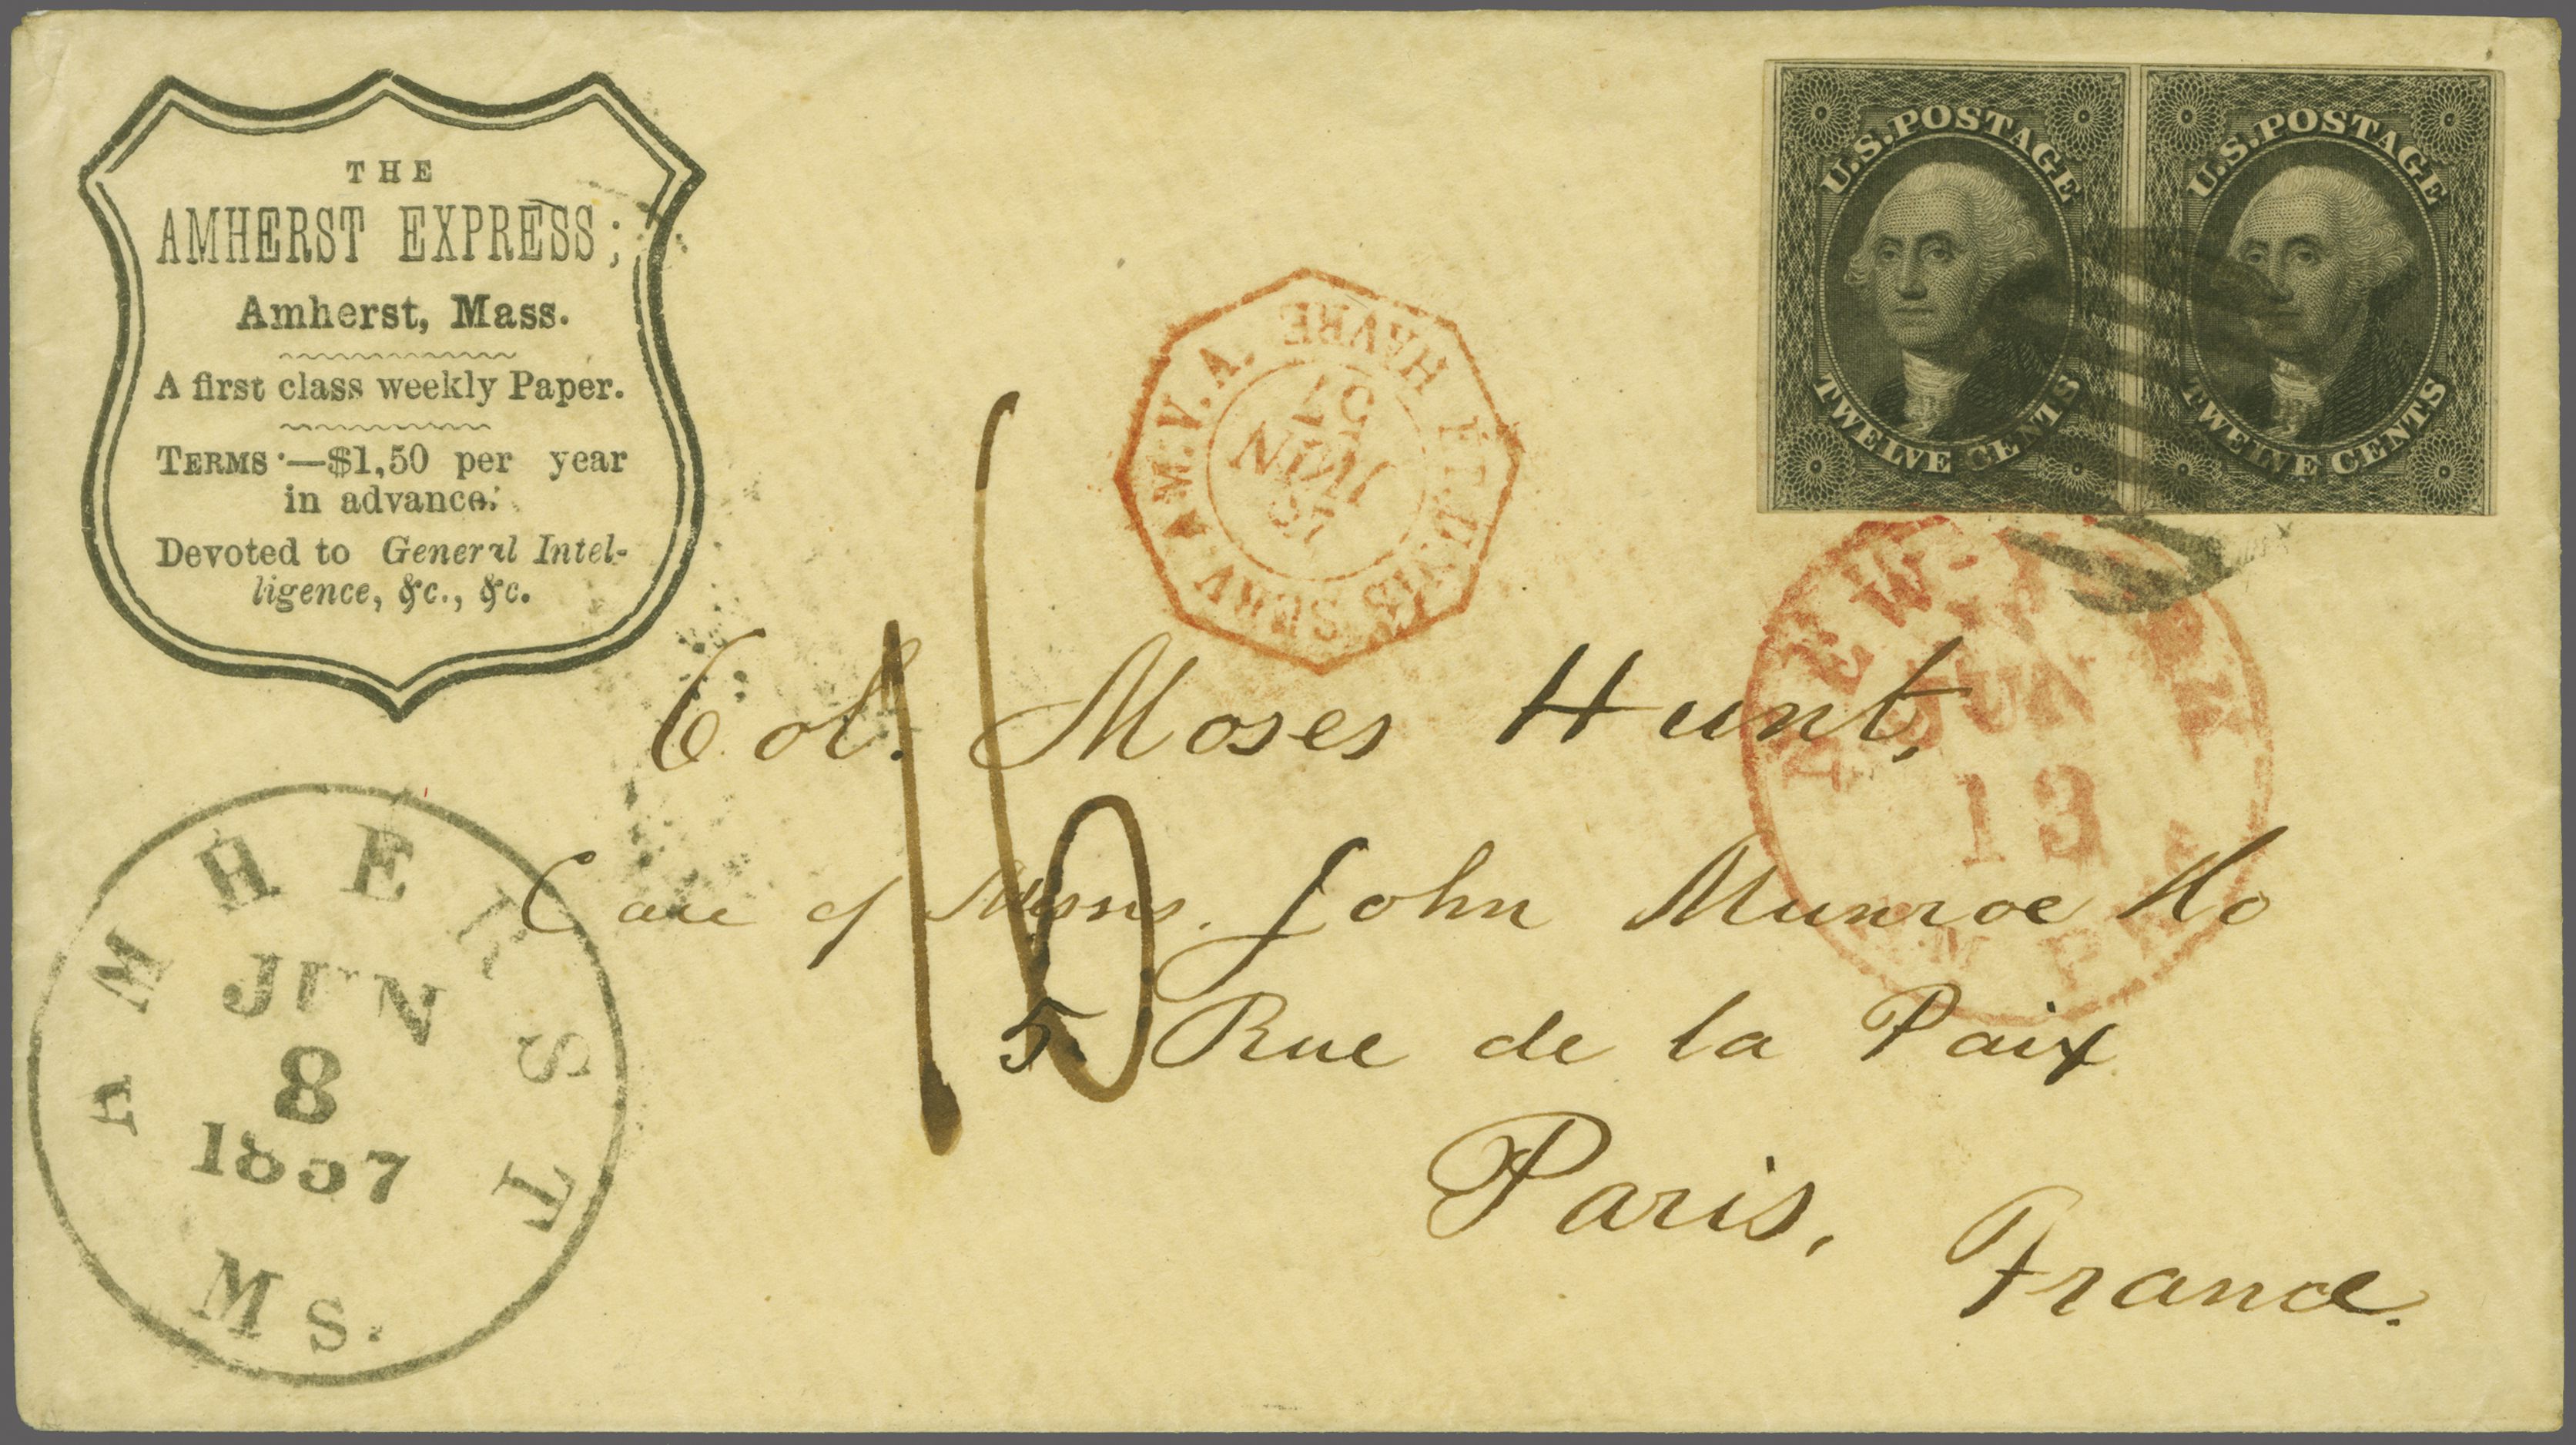 THE
AMHERST EXPRESS;
Amherst, Mass.
A first class weekly Paper.
TERMS.—$1,50 per year
in advance.
Devoted to General Intel-
ligence, &c., &c.
U.S. POSTAGE
TWELVE CENTS
U.S. POSTAGE
TWELVE CENTS
ET. UNIS SERV. AM. V. A. HAVRE
JUIN
57
NEW
JUN
13
16
Col. Moses Hunt,
Care of Messrs. John Munroe & Co
5 Rue de la Paix
Paris,
France.
AMHERST
JUN
8
1857
MS.